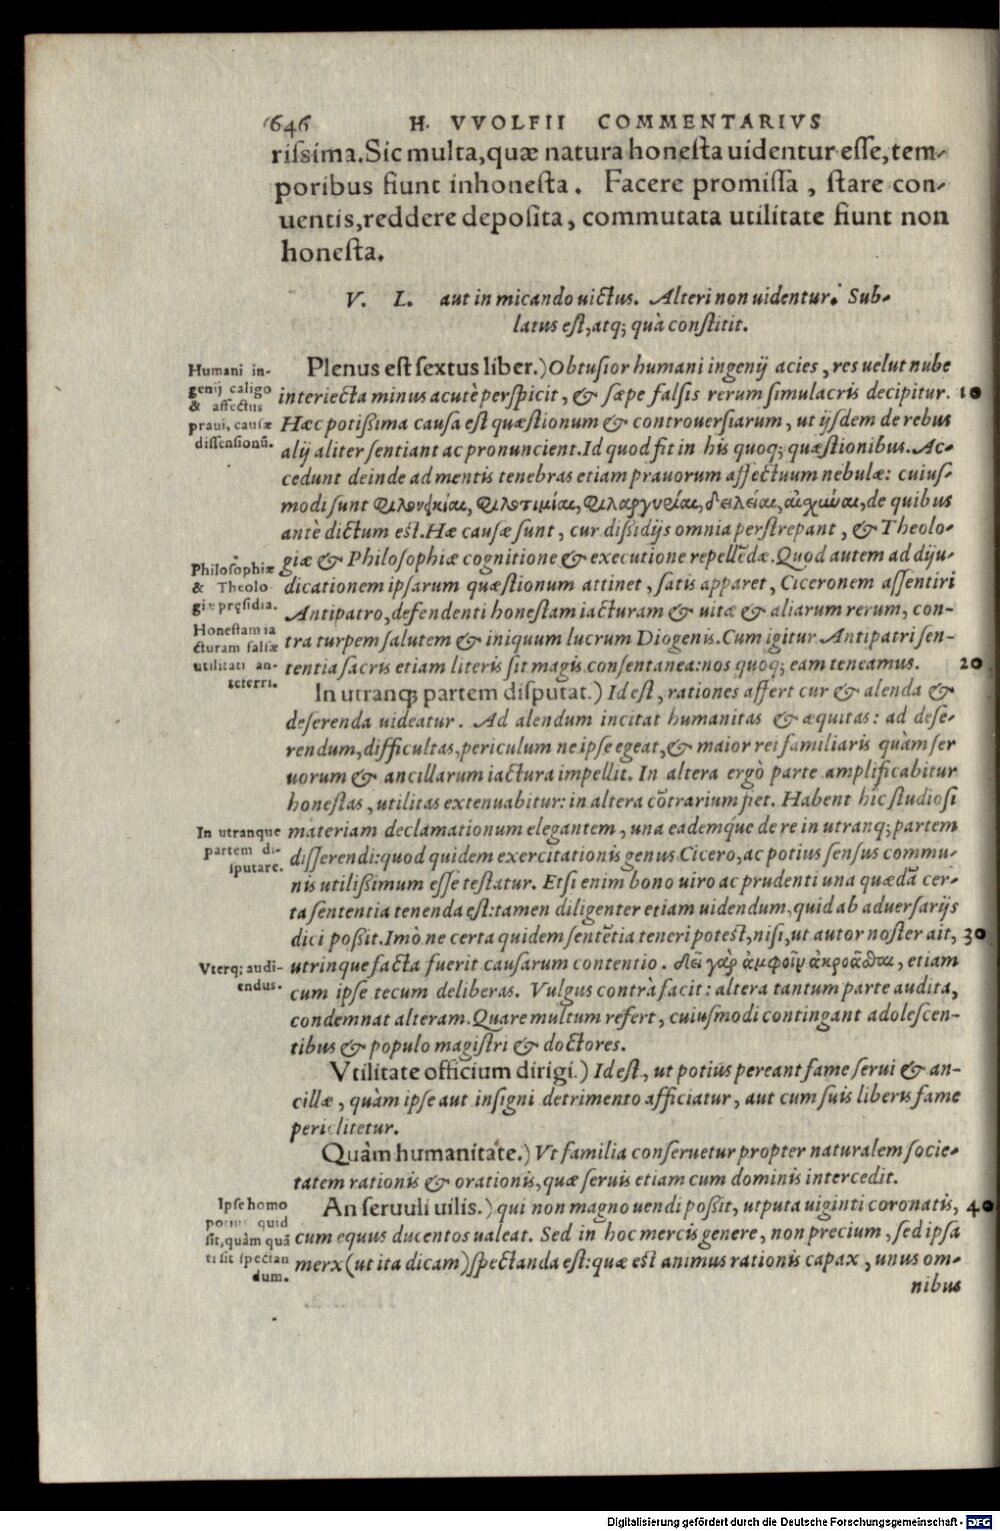 646 H. VVOLFII COMMENTARIVS
rissima. Sic multa, quæ natura honesta uidentur esse, tem-
poribus fiunt inhonesta. Facere promissa, stare con-
uentis, reddere deposita, commutata utilitate fiunt non
honesta.
V. L. aut in micando uictus. Alteri non uidentur. Sub-
latus est, atq; quà constitit.
Humani in-
genij caligo
& affectus
praui, causæ
dissensionū.
Plenus est sextus liber.) Obtusior humani ingenij acies, res uelut nube
interiecta minus acutè perspicit, & sæpe falsis rerum simulacris decipitur. 10
Hæc potißima causa est quæstionum & controuersiarum, ut ijsdem de rebus
alij aliter sentiant ac pronuncient. Id quod fit in his quoq; quæstionibus. Ac-
cedunt deinde ad mentis tenebras etiam prauorum affectuum nebulæ: cuius-
modi sunt φιλονεικίαι, φιλοτιμίαι, φιλαργυρίαι, δειλείαι, αἰσχύναι, de quibus
antè dictum est. Hæ causæ sunt, cur dißidijs omnia perstrepant, & Theolo-
giæ & Philosophiæ cognitione & executione repellēdæ. Quod autem ad diju-
Philosophiæ
& Theolo
giæ pręsidia.
Honestam ia
cturam falsæ
utilitati an-
teferri.
dicationem ipsarum quæstionum attinet, satis apparet, Ciceronem assentiri
Antipatro, defendenti honestam iacturam & uitæ & aliarum rerum, con-
tra turpem salutem & iniquum lucrum Diogenis. Cum igitur Antipatri sen-
tentia sacris etiam literis sit magis consentanea: nos quoq; eam teneamus. 20
In utranq; partem disputat.) Id est, rationes affert cur & alenda &
deserenda uideatur. Ad alendum incitat humanitas & æquitas: ad dese-
rendum, difficultas, periculum ne ipse egeat, & maior rei familiaris quàm ser
uorum & ancillarum iactura impellit. In altera ergò parte amplificabitur
honestas, utilitas extenuabitur: in altera cōtrarium fiet. Habent hic studiosi
In utranque
partem di-
sputare.
materiam declamationum elegantem, una eademq́ue de re in utranq; partem
disserendi: quod quidem exercitationis genus Cicero, ac potius sensus commu-
nis utilißimum esse testatur. Etsi enim bono uiro ac prudenti una quædā cer-
ta sententia tenenda est: tamen diligenter etiam uidendum, quid ab aduersarijs
dici poßit. Imò ne certa quidem sentētia teneri potest, nisi, ut autor noster ait, 30
Vterq; audi-
endus.
utrinque facta fuerit causarum contentio. δεῖ γὰρ ἀμφοῖν ἀκροᾶσθαι, etiam
cum ipse tecum deliberas. Vulgus contrà facit: altera tantum parte audita,
condemnat alteram. Quare multum refert, cuiusmodi contingant adolescen-
tibus & populo magistri & doctores.
Vtilitate officium dirigi.) Id est, ut potius pereant fame serui & an-
cillæ, quàm ipse aut insigni detrimento afficiatur, aut cum suis liberis fame
periclitetur.
Quàm humanitate.) Vt familia conseruetur propter naturalem socie-
tatem rationis & orationis, quæ seruis etiam cum dominis intercedit.
Ipse homo
potius quid
sit, quàm quā
ti sit spectan
dum.
An seruuli uilis.) qui non magno uendi poßit, utputa uiginti coronatis, 40
cum equus ducentos ualeat. Sed in hoc mercis genere, non precium, sed ipsa
merx (ut ita dicam) spectanda est: quæ est animus rationis capax, unus om-
nibus
Digitalisierung gefördert durch die Deutsche Forschungsgemeinschaft - DFG